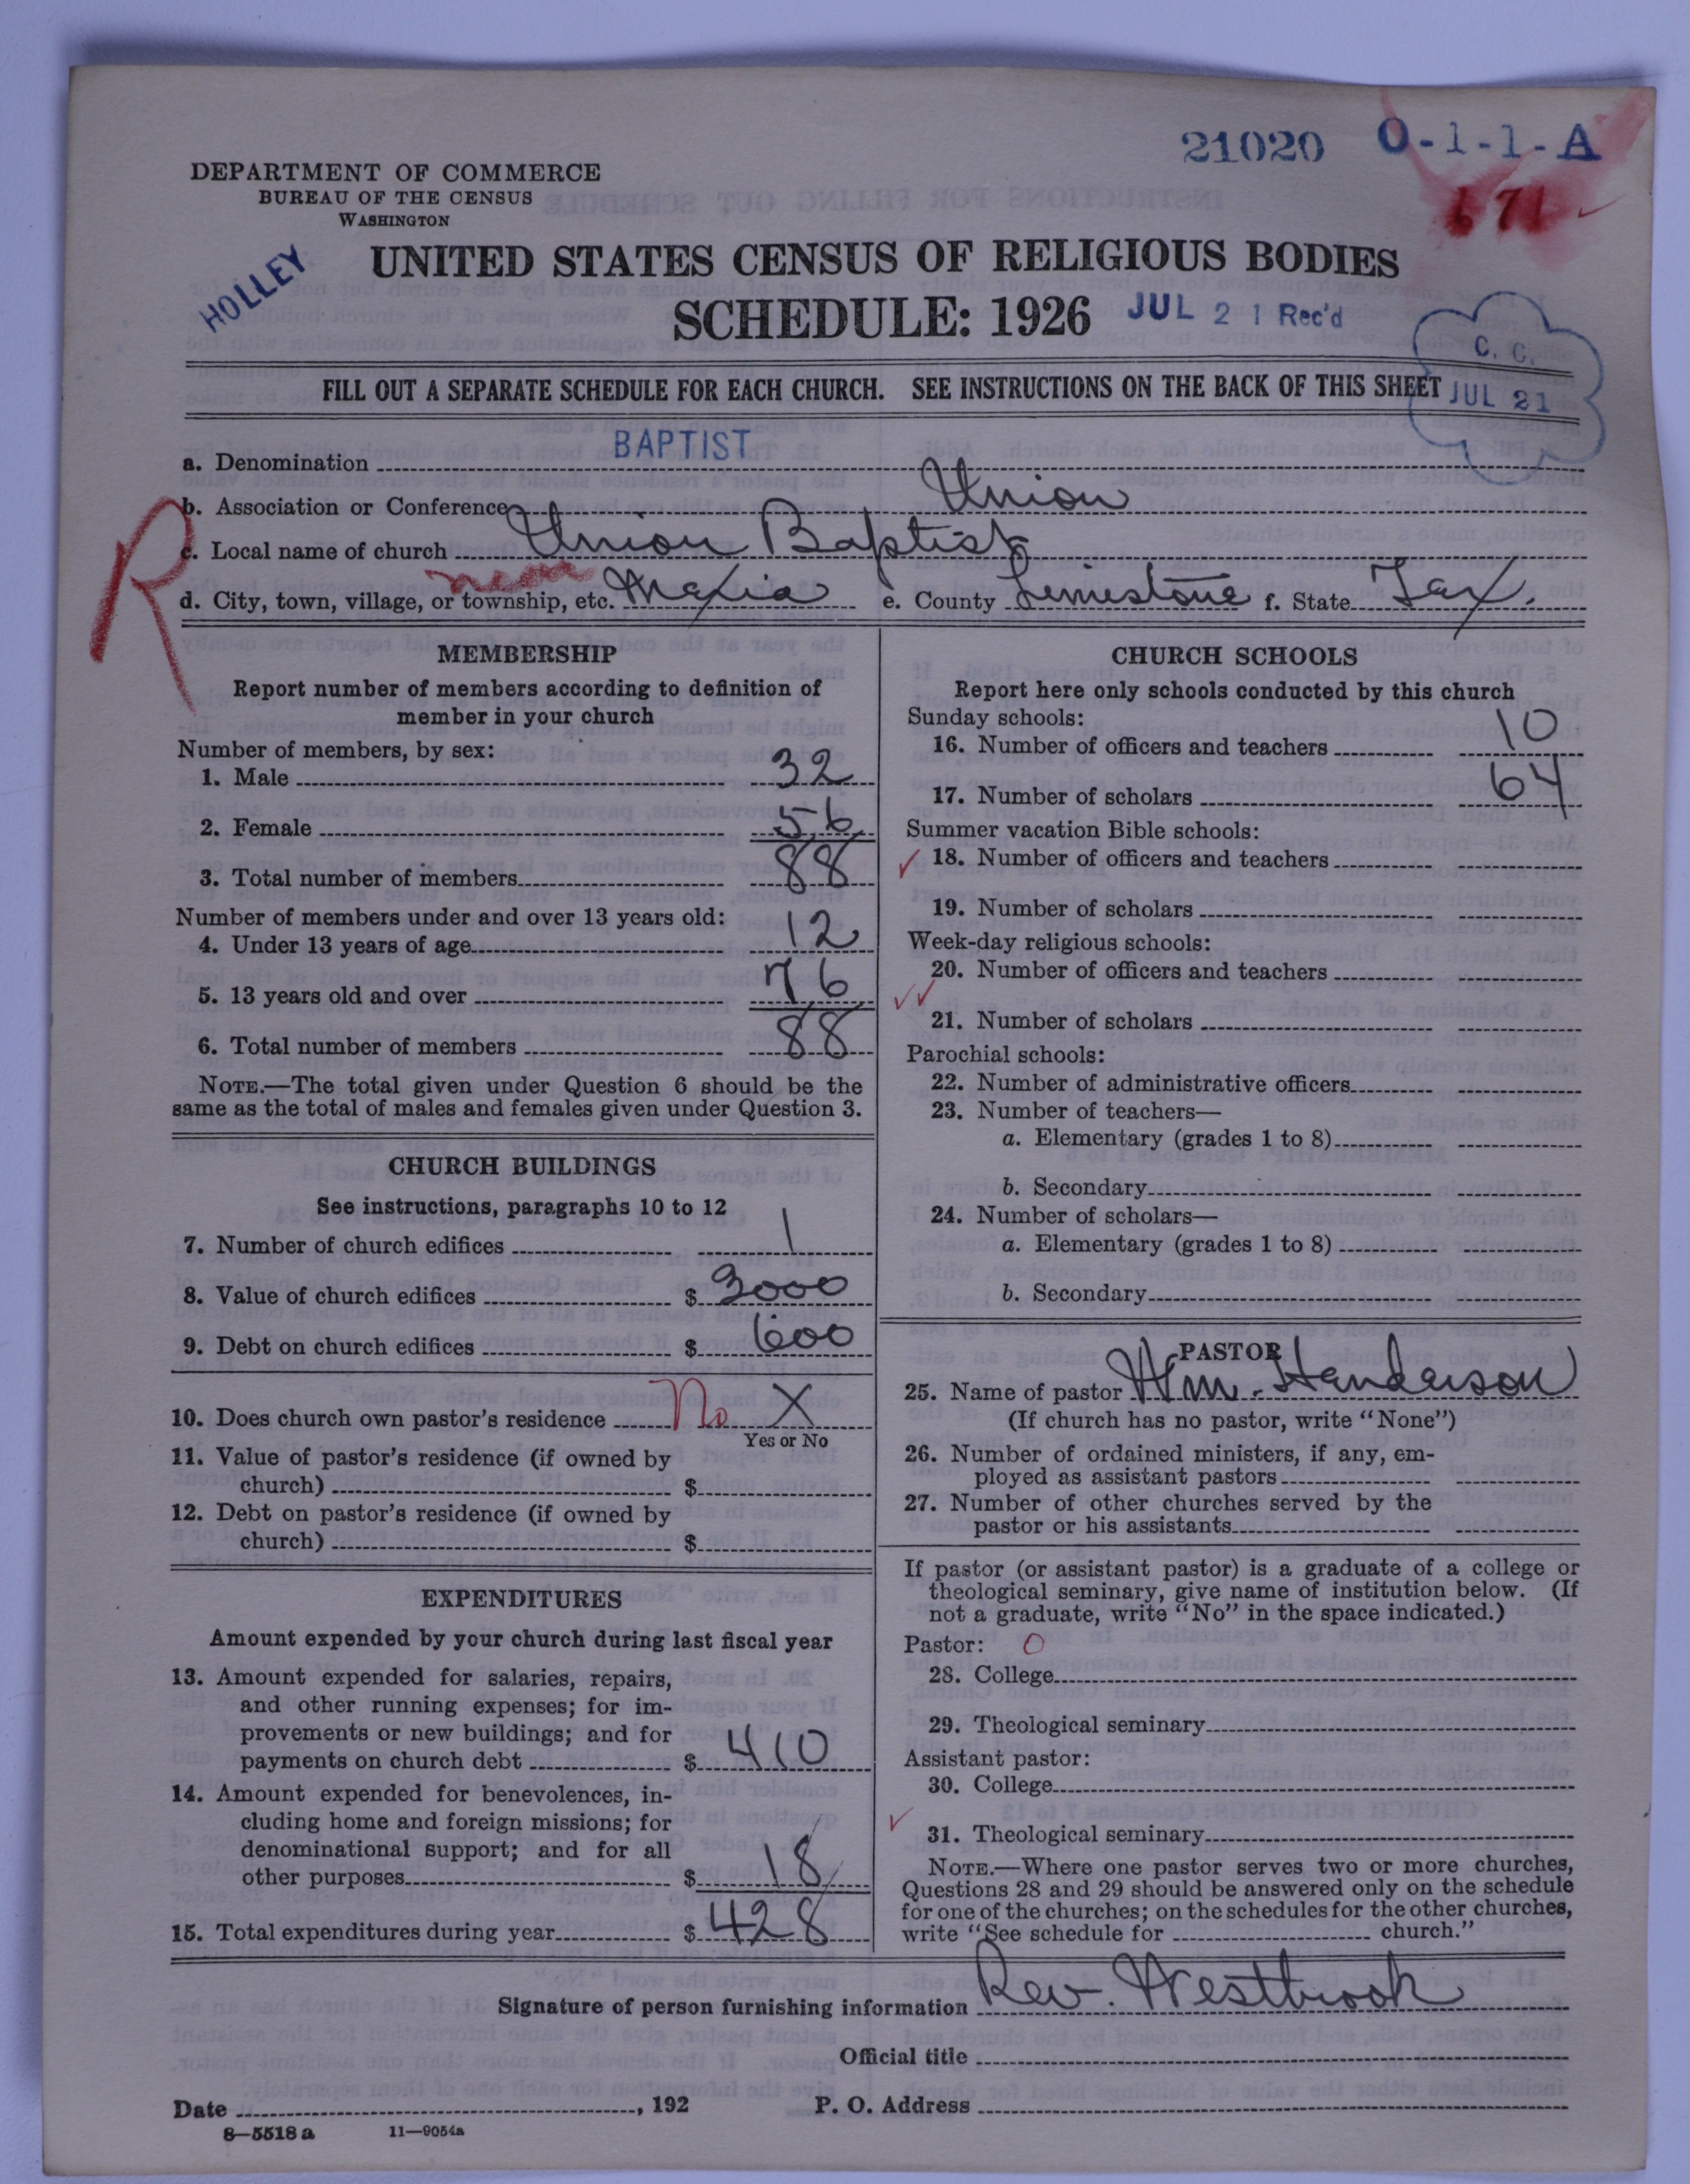 21020 0-1-1-A
671
DEPARTMENT OF COMMERCE
BUREAU OF THE CENSUS
WASHINGTON
HOLLEY
UNITED STATES CENSUS OF RELIGIOUS BODIES
SCHEDULE: 1926 JUL 21 Rec'd
C. C.
JUL 21
FILL OUT A SEPARATE SCHEDULE FOR EACH CHURCH. SEE INSTRUCTIONS ON THE BACK OF THIS SHEET
a. Denomination BAPTIST
R
b. Association or Conference Union
c. Local name of church Union Baptist
near
d. City, town, village, or township, etc. Mexia e. County Limestone f. State Tex.
MEMBERSHIP
Report number of members according to definition of
member in your church
Number of members, by sex:
1. Male 32
2. Female 56
3. Total number of members 88
Number of members under and over 13 years old:
4. Under 13 years of age 12
5. 13 years old and over 76
6. Total number of members 88
NOTE.—The total given under Question 6 should be the
same as the total of males and females given under Question 3.
CHURCH BUILDINGS
See instructions, paragraphs 10 to 12
7. Number of church edifices 1
8. Value of church edifices $ 3000
9. Debt on church edifices $ 600
10. Does church own pastor's residence No X
Yes or No
11. Value of pastor's residence (if owned by
church) $
12. Debt on pastor's residence (if owned by
church) $
EXPENDITURES
Amount expended by your church during last fiscal year
13. Amount expended for salaries, repairs,
and other running expenses; for im-
provements or new buildings; and for
payments on church debt $ 410
14. Amount expended for benevolences, in-
cluding home and foreign missions; for
denominational support; and for all
other purposes $ 18
15. Total expenditures during year $ 428
CHURCH SCHOOLS
Report here only schools conducted by this church
Sunday schools:
16. Number of officers and teachers 10
17. Number of scholars 64
Summer vacation Bible schools:
18. Number of officers and teachers
19. Number of scholars
Week-day religious schools:
20. Number of officers and teachers
21. Number of scholars
Parochial schools:
22. Number of administrative officers
23. Number of teachers—
a. Elementary (grades 1 to 8)
b. Secondary
24. Number of scholars—
a. Elementary (grades 1 to 8)
b. Secondary
PASTOR
25. Name of pastor Wm. Handerson
(If church has no pastor, write "None")
26. Number of ordained ministers, if any, em-
ployed as assistant pastors
27. Number of other churches served by the
pastor or his assistants
If pastor (or assistant pastor) is a graduate of a college or
theological seminary, give name of institution below. (If
not a graduate, write "No" in the space indicated.)
Pastor: O
28. College
29. Theological seminary
Assistant pastor:
30. College
31. Theological seminary
NOTE.—Where one pastor serves two or more churches,
Questions 28 and 29 should be answered only on the schedule
for one of the churches; on the schedules for the other churches,
write "See schedule for church."
Signature of person furnishing information Rev. Westbrook
Official title
Date , 192 P. O. Address
8—5518 a 11—9054a